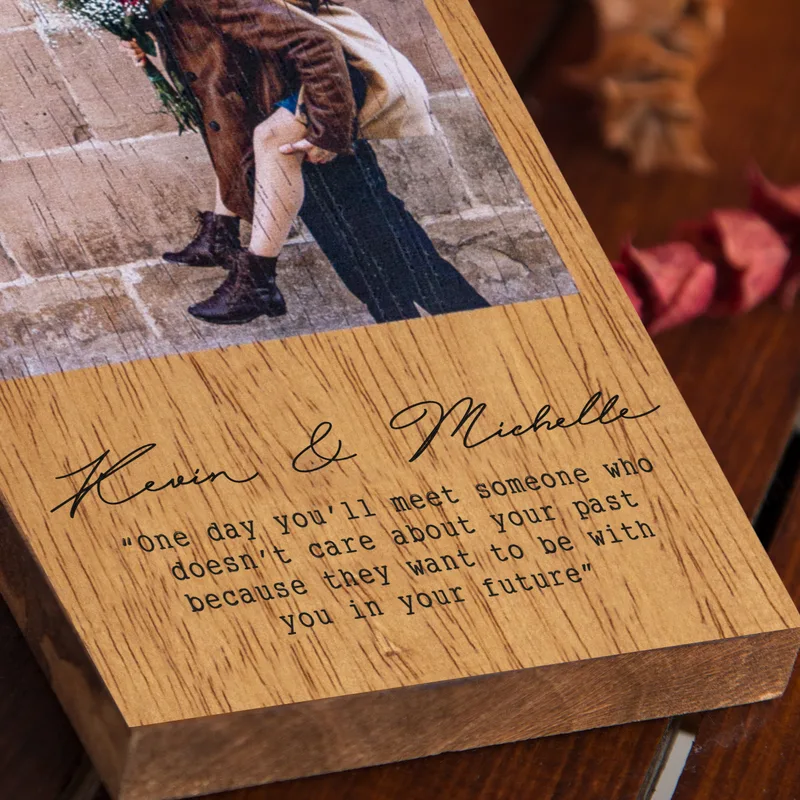 Kevin & Michelle
"One day you'll meet someone who
doesn't care about your past
because they want to be with
you in your future"